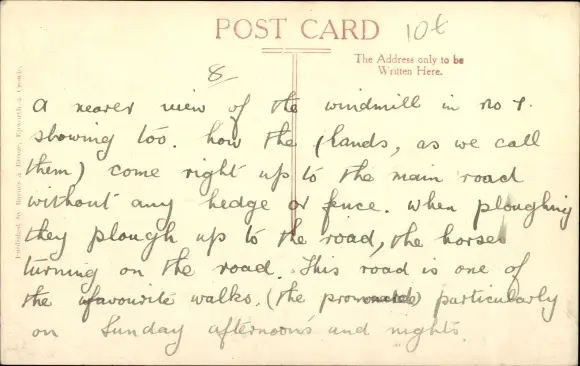 POST CARD
10t
The Address only to be
Written Here.
8
Published by Barnes & Breeze, Epworth & Crowle.
A nearer view of the windmill in no 7.
showing too. how the (lands, as we call
them) come right up to the main road
without any hedge or fence. when ploughing
they plough up to the road, the horses
turning on the road. This road is one of
the favourite walks. (the promonade) particularly
on Sunday afternoons and nights.